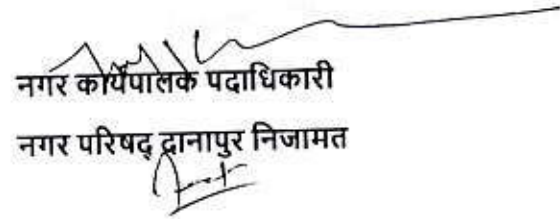 नगर कार्यपालक पदाधिकारी
नगर परिषद् दानापुर निजामत